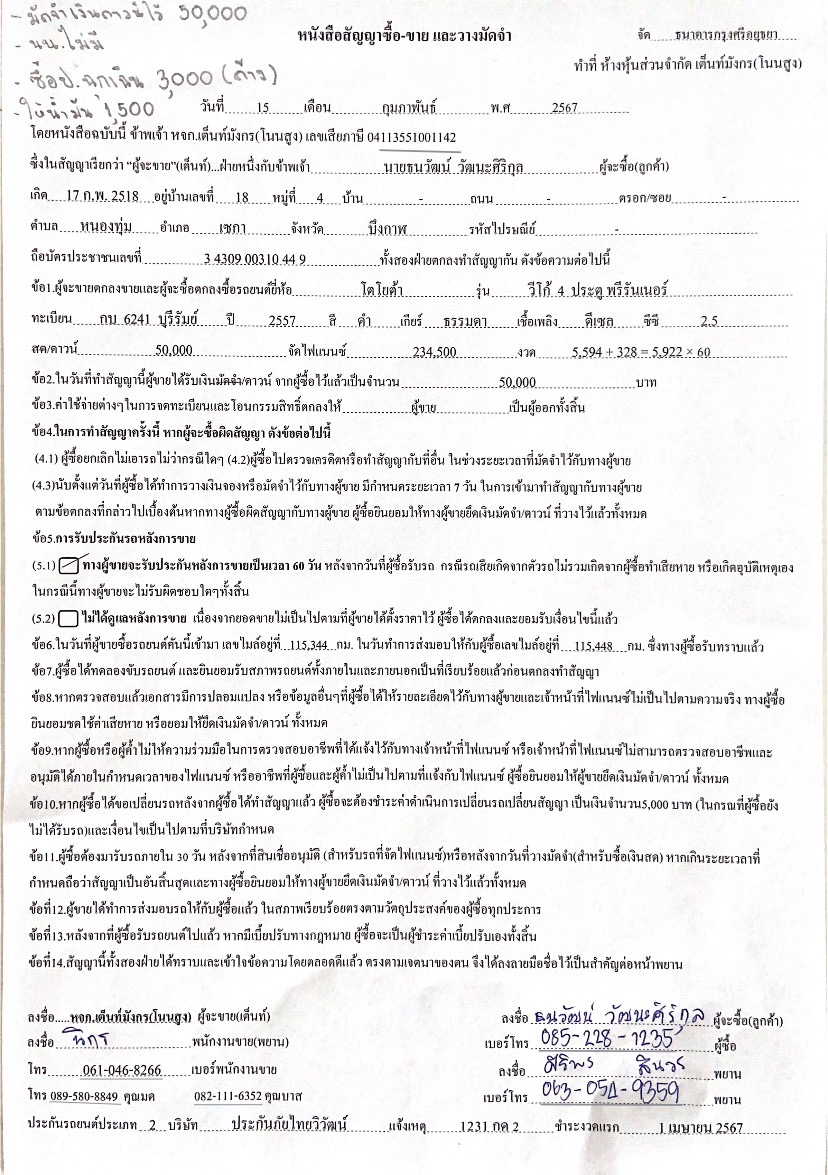 - มัดจำเงินดาวน์ไว้ 50,000
- นน.ไม่มี
- ซื้อป.ฉุกเฉิน 3,000 (ค้าง)
- ให้น้ำมัน 1,500
หนังสือสัญญาซื้อ-ขาย และวางมัดจำ
จัด ธนาคารกรุงศรีอยุธยา
ทำที่ ห้างหุ้นส่วนจำกัด เต็นท์มังกร(โนนสูง)
วันที่ 15 เดือน กุมภาพันธ์ พ.ศ 2567
โดยหนังสือฉบับนี้ ข้าพเจ้า หจก.เต็นท์มังกร(โนนสูง) เลขเสียภาษี 04113551001142
ซึ่งในสัญญาเรียกว่า "ผู้จะขาย"(เต็นท์)...ฝ่ายหนึ่งกับข้าพเจ้า นายธนวัฒน์ วัฒนะศิริกุล ผู้จะซื้อ(ลูกค้า)
เกิด 17 ก.พ. 2518 อยู่บ้านเลขที่ 18 หมู่ที่ 4 บ้าน - ถนน - ตรอก/ซอย -
ตำบล หนองทุ่ม อำเภอ เซกา จังหวัด บึงกาฬ รหัสไปรษณีย์ -
ถือบัตรประชาชนเลขที่ 3 4309 00310 44 9 ทั้งสองฝ่ายตกลงทำสัญญากัน ดังข้อความต่อไปนี้
ข้อ1.ผู้จะขายตกลงขายและผู้จะซื้อตกลงซื้อรถยนต์ยี่ห้อ โตโยต้า รุ่น วีโก้ 4 ประตู พรีรันเนอร์
ทะเบียน กบ 6241 บุรีรัมย์ ปี 2557 สี ดำ เกียร์ ธรรมดา เชื้อเพลิง ดีเซล ซีซี 2.5
สด/ดาวน์ 50,000 จัดไฟแนนซ์ 234,500 งวด 5,594 + 328 = 5,922 × 60
ข้อ2.ในวันที่ทำสัญญานี้ผู้ขายได้รับเงินมัดจำ/ดาวน์ จากผู้ซื้อไว้แล้วเป็นจำนวน 50,000 บาท
ข้อ3.ค่าใช้จ่ายต่างๆในการจดทะเบียนและโอนกรรมสิทธิ์ตกลงให้ ผู้ขาย เป็นผู้ออกทั้งสิ้น
ข้อ4.ในการทำสัญญาครั้งนี้ หากผู้จะซื้อผิดสัญญา ดังข้อต่อไปนี้
(4.1) ผู้ซื้อยกเลิกไม่เอารถไม่ว่ากรณีใดๆ (4.2)ผู้ซื้อไปตรวจเครดิตหรือทำสัญญากับที่อื่น ในช่วงระยะเวลาที่มัดจำไว้กับทางผู้ขาย
(4.3)นับตั้งแต่วันที่ผู้ซื้อได้ทำการวางเงินจองหรือมัดจำไว้กับทางผู้ขาย มีกำหนดระยะเวลา 7 วัน ในการเข้ามาทำสัญญากับทางผู้ขาย
ตามข้อตกลงที่กล่าวไปเบื้องต้นหากทางผู้ซื้อผิดสัญญากับทางผู้ขาย ผู้ซื้อยินยอมให้ทางผู้ขายยึดเงินมัดจำ/ดาวน์ ที่วางไว้แล้วทั้งหมด
ข้อ5.การรับประกันรถหลังการขาย
(5.1) ทางผู้ขายจะรับประกันหลังการขายเป็นเวลา 60 วัน หลังจากวันที่ผู้ซื้อรับรถ กรณีรถเสียเกิดจากตัวรถไม่รวมเกิดจากผู้ซื้อทำเสียหาย หรือเกิดอุบัติเหตุเอง
ในกรณีนี้ทางผู้ขายจะไม่รับผิดชอบใดๆทั้งสิ้น
(5.2) ไม่ได้ดูแลหลังการขาย เนื่องจากยอดขายไม่เป็นไปตามที่ผู้ขายได้ตั้งราคาไว้ ผู้ซื้อได้ตกลงและยอมรับเงื่อนไขนี้แล้ว
ข้อ6.ในวันที่ผู้ขายซื้อรถยนต์คันนี้เข้ามา เลขไมล์อยู่ที่ 115,344 กม. ในวันทำการส่งมอบให้กับผู้ซื้อเลขไมล์อยู่ที่ 115,448 กม. ซึ่งทางผู้ซื้อรับทราบแล้ว
ข้อ7.ผู้ซื้อได้ทดลองขับรถยนต์ และยินยอมรับสภาพรถยนต์ทั้งภายในและภายนอกเป็นที่เรียบร้อยแล้วก่อนตกลงทำสัญญา
ข้อ8.หากตรวจสอบแล้วเอกสารมีการปลอมแปลง หรือข้อมูลอื่นๆที่ผู้ซื้อได้ให้รายละเอียดไว้กับทางผู้ขายและเจ้าหน้าที่ไฟแนนซ์ไม่เป็นไปตามความจริง ทางผู้ซื้อ
ยินยอมชดใช้ค่าเสียหาย หรือยอมให้ยึดเงินมัดจำ/ดาวน์ ทั้งหมด
ข้อ9.หากผู้ซื้อหรือผู้ค้ำไม่ให้ความร่วมมือในการตรวจสอบอาชีพที่ได้แจ้งไว้กับทางเจ้าหน้าที่ไฟแนนซ์ หรือเจ้าหน้าที่ไฟแนนซ์ไม่สามารถตรวจสอบอาชีพและ
อนุมัติได้ภายในกำหนดเวลาของไฟแนนซ์ หรืออาชีพที่ผู้ซื้อและผู้ค้ำไม่เป็นไปตามที่แจ้งกับไฟแนนซ์ ผู้ซื้อยินยอมให้ผู้ขายยึดเงินมัดจำ/ดาวน์ ทั้งหมด
ข้อ10.หากผู้ซื้อได้ขอเปลี่ยนรถหลังจากผู้ซื้อได้ทำสัญญาแล้ว ผู้ซื้อจะต้องชำระค่าดำเนินการเปลี่ยนรถเปลี่ยนสัญญา เป็นเงินจำนวน5,000 บาท (ในกรณีที่ผู้ซื้อยัง
ไม่ได้รับรถ)และเงื่อนไขเป็นไปตามที่บริษัทกำหนด
ข้อ11.ผู้ซื้อต้องมารับรถภายใน 30 วัน หลังจากที่สินเชื่ออนุมัติ (สำหรับรถที่จัดไฟแนนซ์)หรือหลังจากวันที่วางมัดจำ(สำหรับซื้อเงินสด) หากเกินระยะเวลาที่
กำหนดถือว่าสัญญาเป็นอันสิ้นสุดและทางผู้ซื้อยินยอมให้ทางผู้ขายยึดเงินมัดจำ/ดาวน์ ที่วางไว้แล้วทั้งหมด
ข้อที่12.ผู้ขายได้ทำการส่งมอบรถให้กับผู้ซื้อแล้ว ในสภาพเรียบร้อยตรงตามวัตถุประสงค์ของผู้ซื้อทุกประการ
ข้อที่13.หลังจากที่ผู้ซื้อรับรถยนต์ไปแล้ว หากมีเบี้ยปรับทางกฎหมาย ผู้ซื้อจะเป็นผู้ชำระค่าเบี้ยปรับเองทั้งสิ้น
ข้อที่14.สัญญานี้ทั้งสองฝ่ายได้ทราบและเข้าใจข้อความโดยตลอดดีแล้ว ตรงตามเจตนาของตน จึงได้ลงลายมือชื่อไว้เป็นสำคัญต่อหน้าพยาน
ลงชื่อ.....หจก.เต็นท์มังกร(โนนสูง) ผู้จะขาย(เต็นท์)
ลงชื่อ ธนวัฒน์ วัฒนะศิริกุล ผู้จะซื้อ(ลูกค้า)
ลงชื่อ พนักงานขาย(พยาน)
เบอร์โทร 085-228-1235 ผู้ซื้อ
โทร 061-046-8266 เบอร์พนักงานขาย
ลงชื่อ ศิริพร พยาน
โทร 089-580-8849 คุณมด 082-111-6352 คุณบาส
เบอร์โทร 063-051-9359 พยาน
ประกันรถยนต์ประเภท 2 บริษัท ประกันภัยไทยวิวัฒน์ แจ้งเหตุ 1231 กด 2 ชำระงวดแรก 1 เมษายน 2567